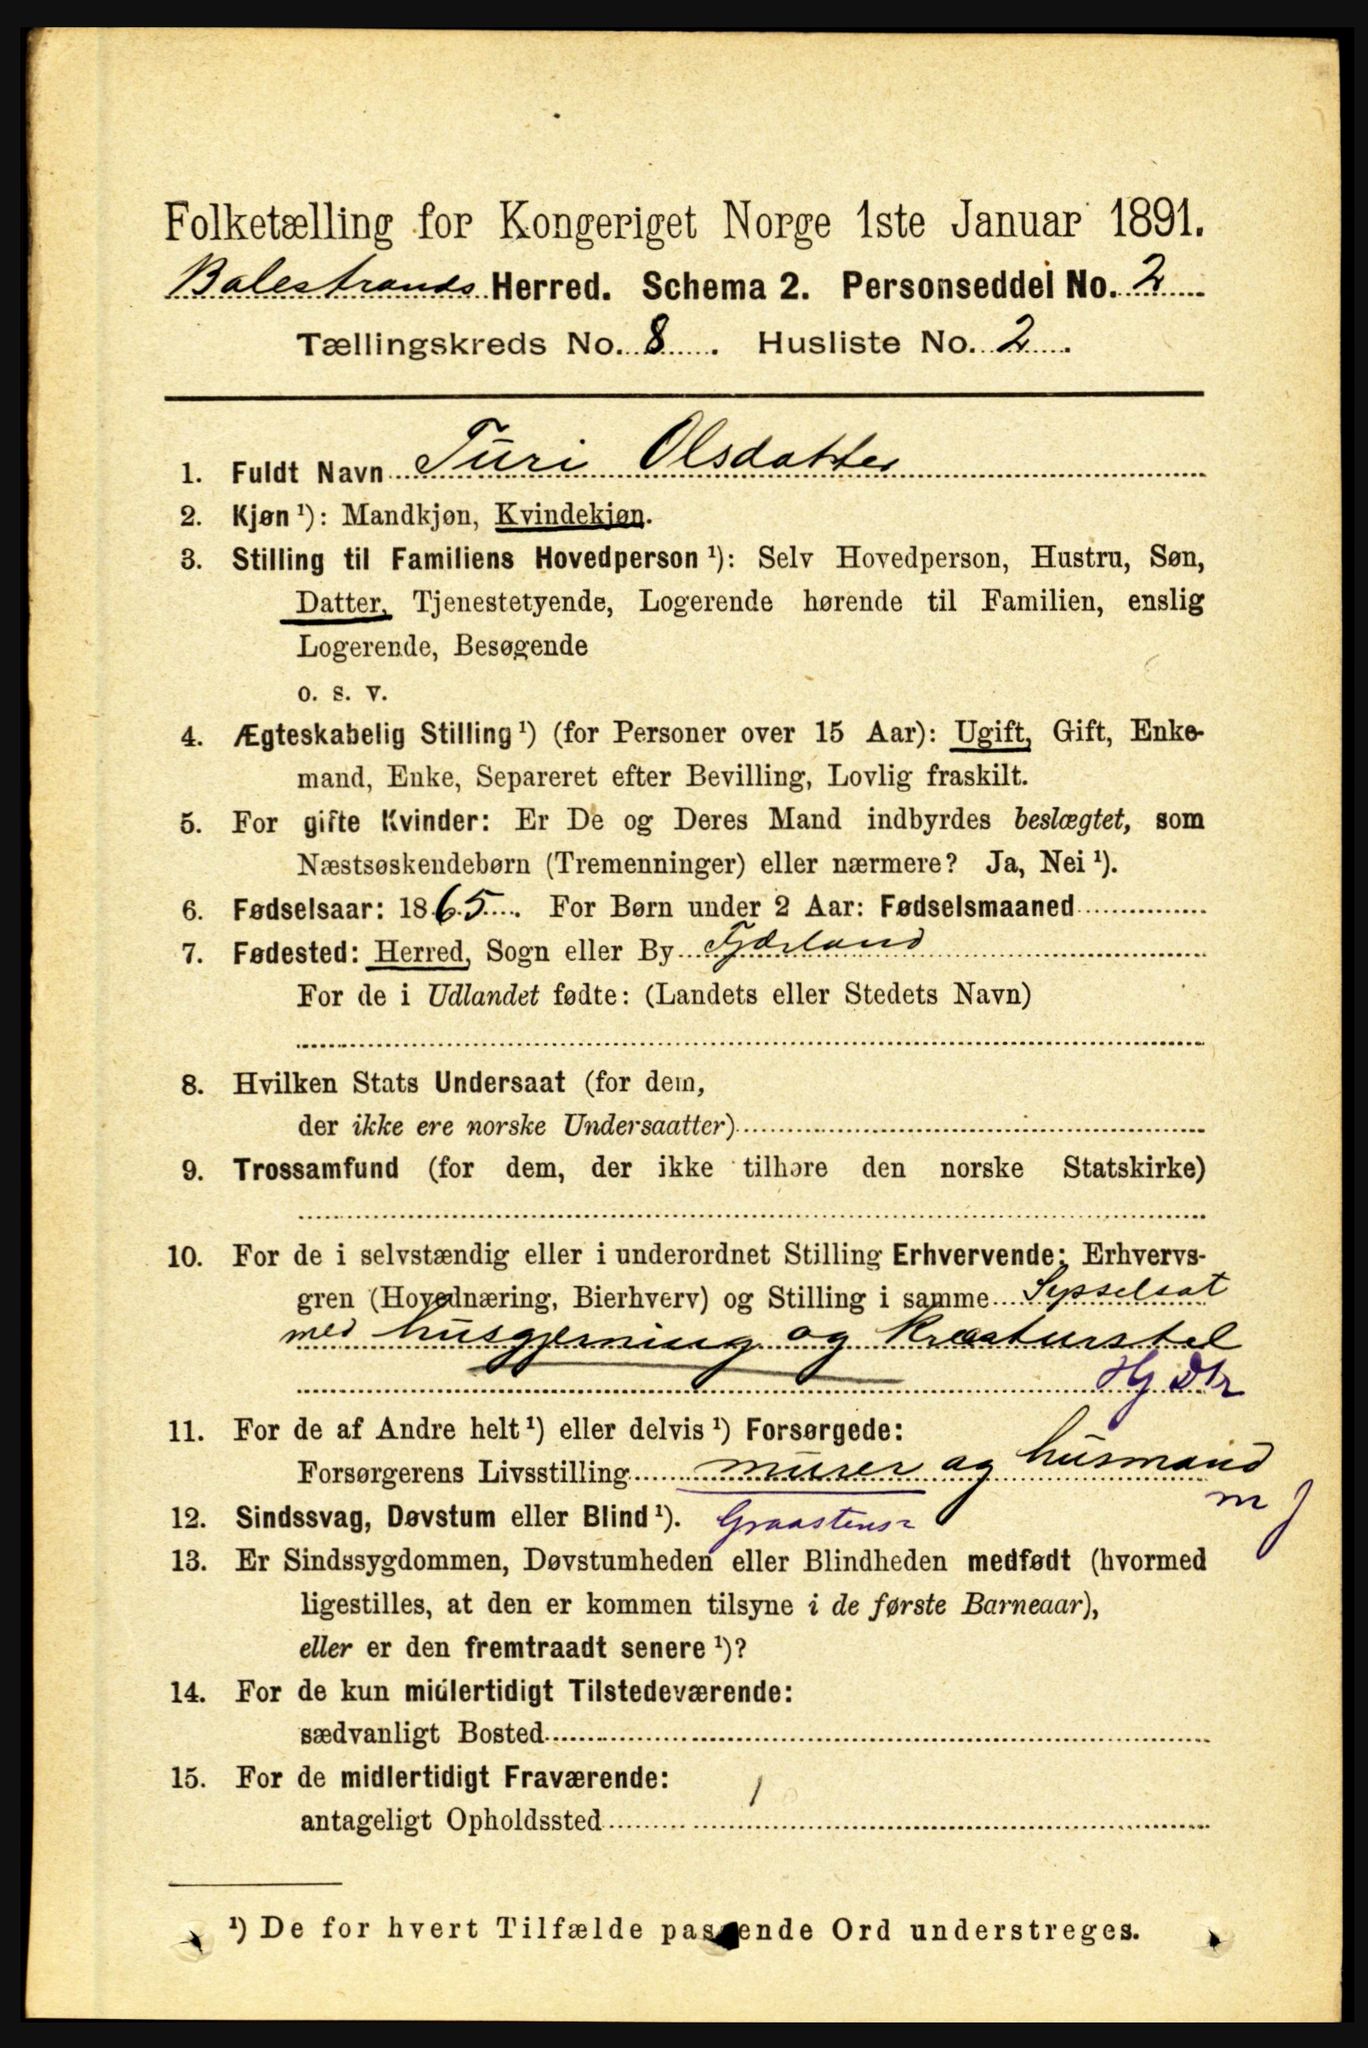 Folketælling for Kongeriget Norge 1ste Januar 1891.
Balestrands Herred. Schema 2. Personseddel No. 2
Tællingskreds No. 8. Husliste No. 2.
1. Fuldt Navn Turi Olsdatter
2. Kjøn ¹): Mandkjøn, Kvindekjøn.
3. Stilling til Familiens Hovedperson ¹): Selv Hovedperson, Hustru, Søn,
Datter, Tjenestetyende, Logerende hørende til Familien, enslig
Logerende, Besøgende
o. s. v.
4. Ægteskabelig Stilling ¹) (for Personer over 15 Aar): Ugift, Gift, Enke-
mand, Enke, Separeret efter Bevilling, Lovlig fraskilt.
5. For gifte Kvinder: Er De og Deres Mand indbyrdes beslægtet, som
Næstsøskendebørn (Tremenninger) eller nærmere? Ja, Nei ¹).
6. Fødselsaar: 1865. For Børn under 2 Aar: Fødselsmaaned
7. Fødested: Herred, Sogn eller By Fjærland
For de i Udlandet fødte: (Landets eller Stedets Navn)
8. Hvilken Stats Undersaat (for dem,
der ikke ere norske Undersaatter)
9. Trossamfund (for dem, der ikke tilhøre den norske Statskirke)
10. For de i selvstændig eller i underordnet Stilling Erhvervende: Erhvervs-
gren (Hovednæring, Bierhverv) og Stilling i samme Sysselsat
med husgjerning og Kreaturstel
Hj Dtr
11. For de af Andre helt ¹) eller delvis ¹) Forsørgede:
Forsørgerens Livsstilling murer og husmand
m J
12. Sindssvag, Døvstum eller Blind ¹). Graastens-
13. Er Sindssygdommen, Døvstumheden eller Blindheden medfødt (hvormed
ligestilles, at den er kommen tilsyne i de første Barneaar),
eller er den fremtraadt senere ¹)?
14. For de kun midlertidigt Tilstedeværende:
sædvanligt Bosted
15. For de midlertidigt Fraværende:
antageligt Opholdssted
¹) De for hvert Tilfælde passende Ord understreges.